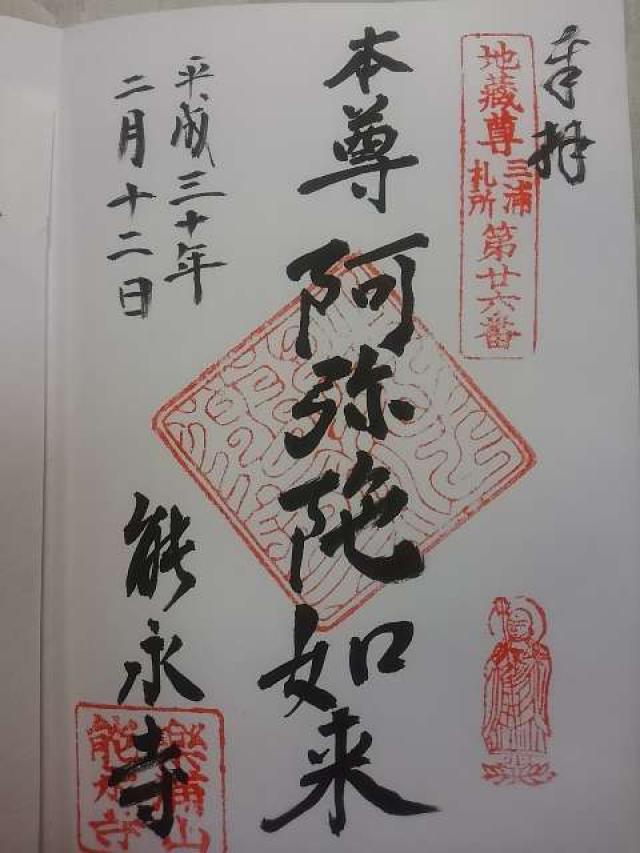 奉拝
地蔵尊
三浦
札所
第廿六番
本尊 阿弥陀如来
平成三十年
二月十二日
能永寺
能永寺